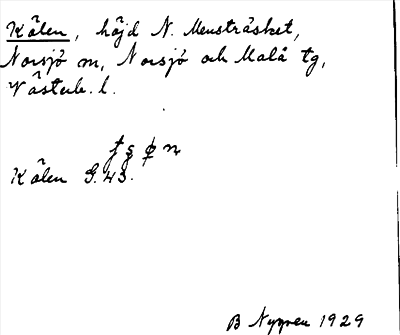 Kålen, höjd N. Mensträsket,
Norsjö m, Norsjö och Malå tg,
Västerb. l.
Kålen G. 43.
B Nygren 1929